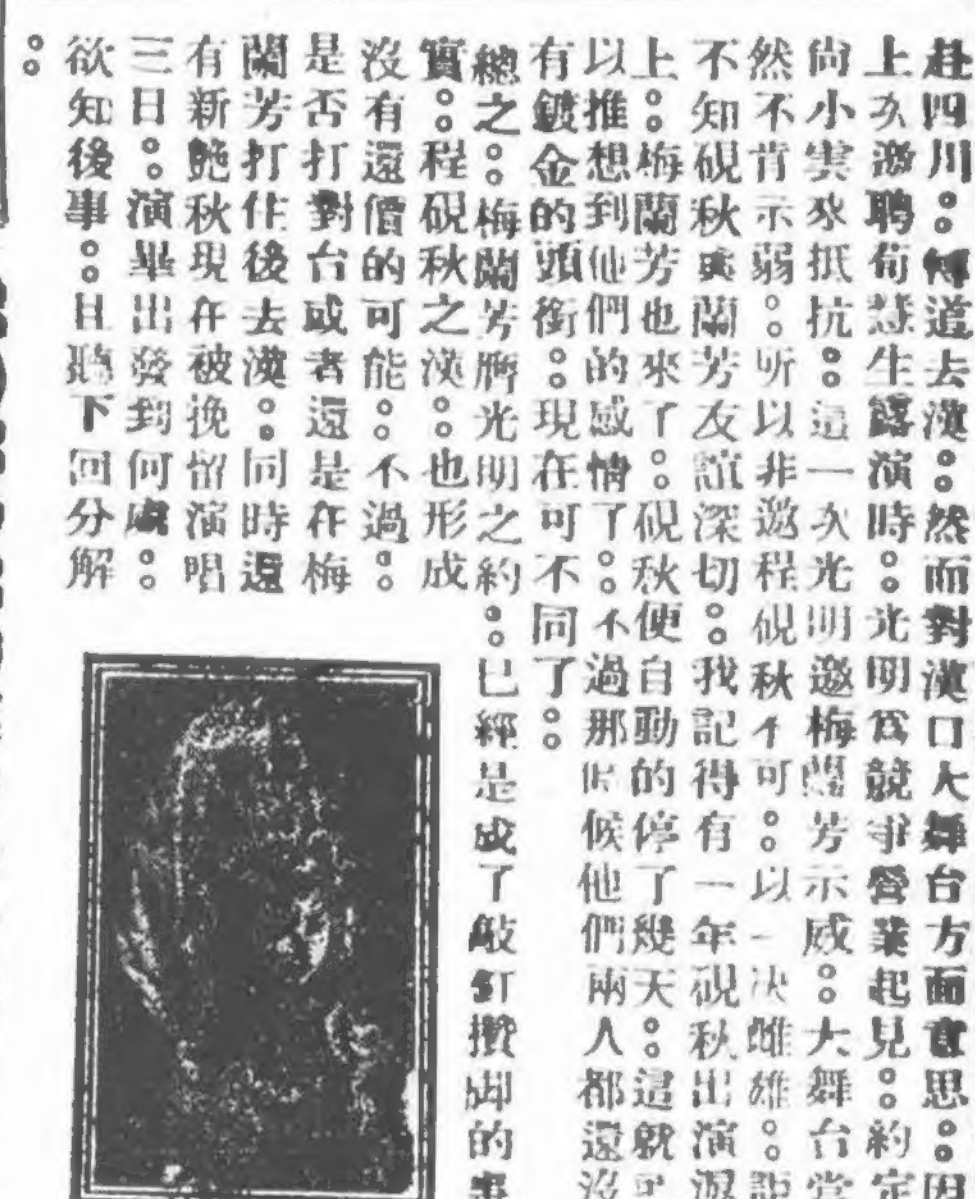 赴四川。。便道去漢。。然而對漢口大舞台方面意思。。因
上次激聘荀慧生露演時。。光明爲競爭營業起見。。約定
尙小雲來抵抗。。這一次光明邀梅蘭芳示威。。大舞台當
然不肯示弱。。所以非邀程硯秋不可。。以一決雌雄。。詎
不知硯秋與蘭芳友誼深切。。我記得有一年硯秋出演
上。。梅蘭芳也來了。。硯秋便自動的停了幾天。。這就可
以推想到他們的感情了。。不過那時候他們兩人都還沒
有鍍金的頭銜。。現在可不同了。。
總之。。梅蘭芳膺光明之約。。已經是成了敲釘攢脚的事
實。。程硯秋之漢。。也形成
沒有還價的可能。。不過。。
是否打對台或者還是在梅
蘭芳打住後去漢。。同時還
有新艷秋現在被挽留演唱
三日。。演畢出發到何處。。
欲知後事。。且聽下回分解
。。